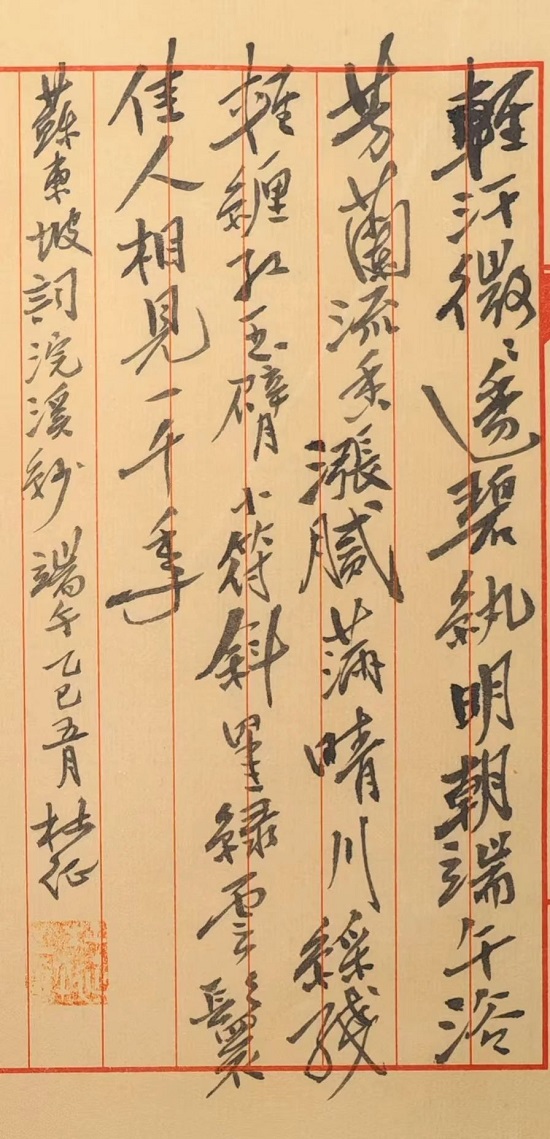 輕汗微〻透碧紈明朝端午浴
芳蘭流香漲膩滿晴川綵綫
輕纏紅玉臂小符斜罣綠雲鬟
佳人相見一千年
蘇東坡詞浣溪紗 端午乙巳五月 杜征